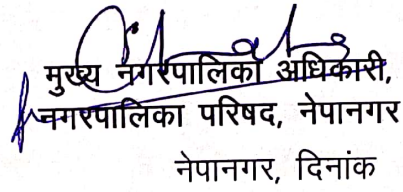 मुख्य नगरपालिका अधिकारी,
नगरपालिका परिषद, नेपानगर
नेपानगर, दिनांक